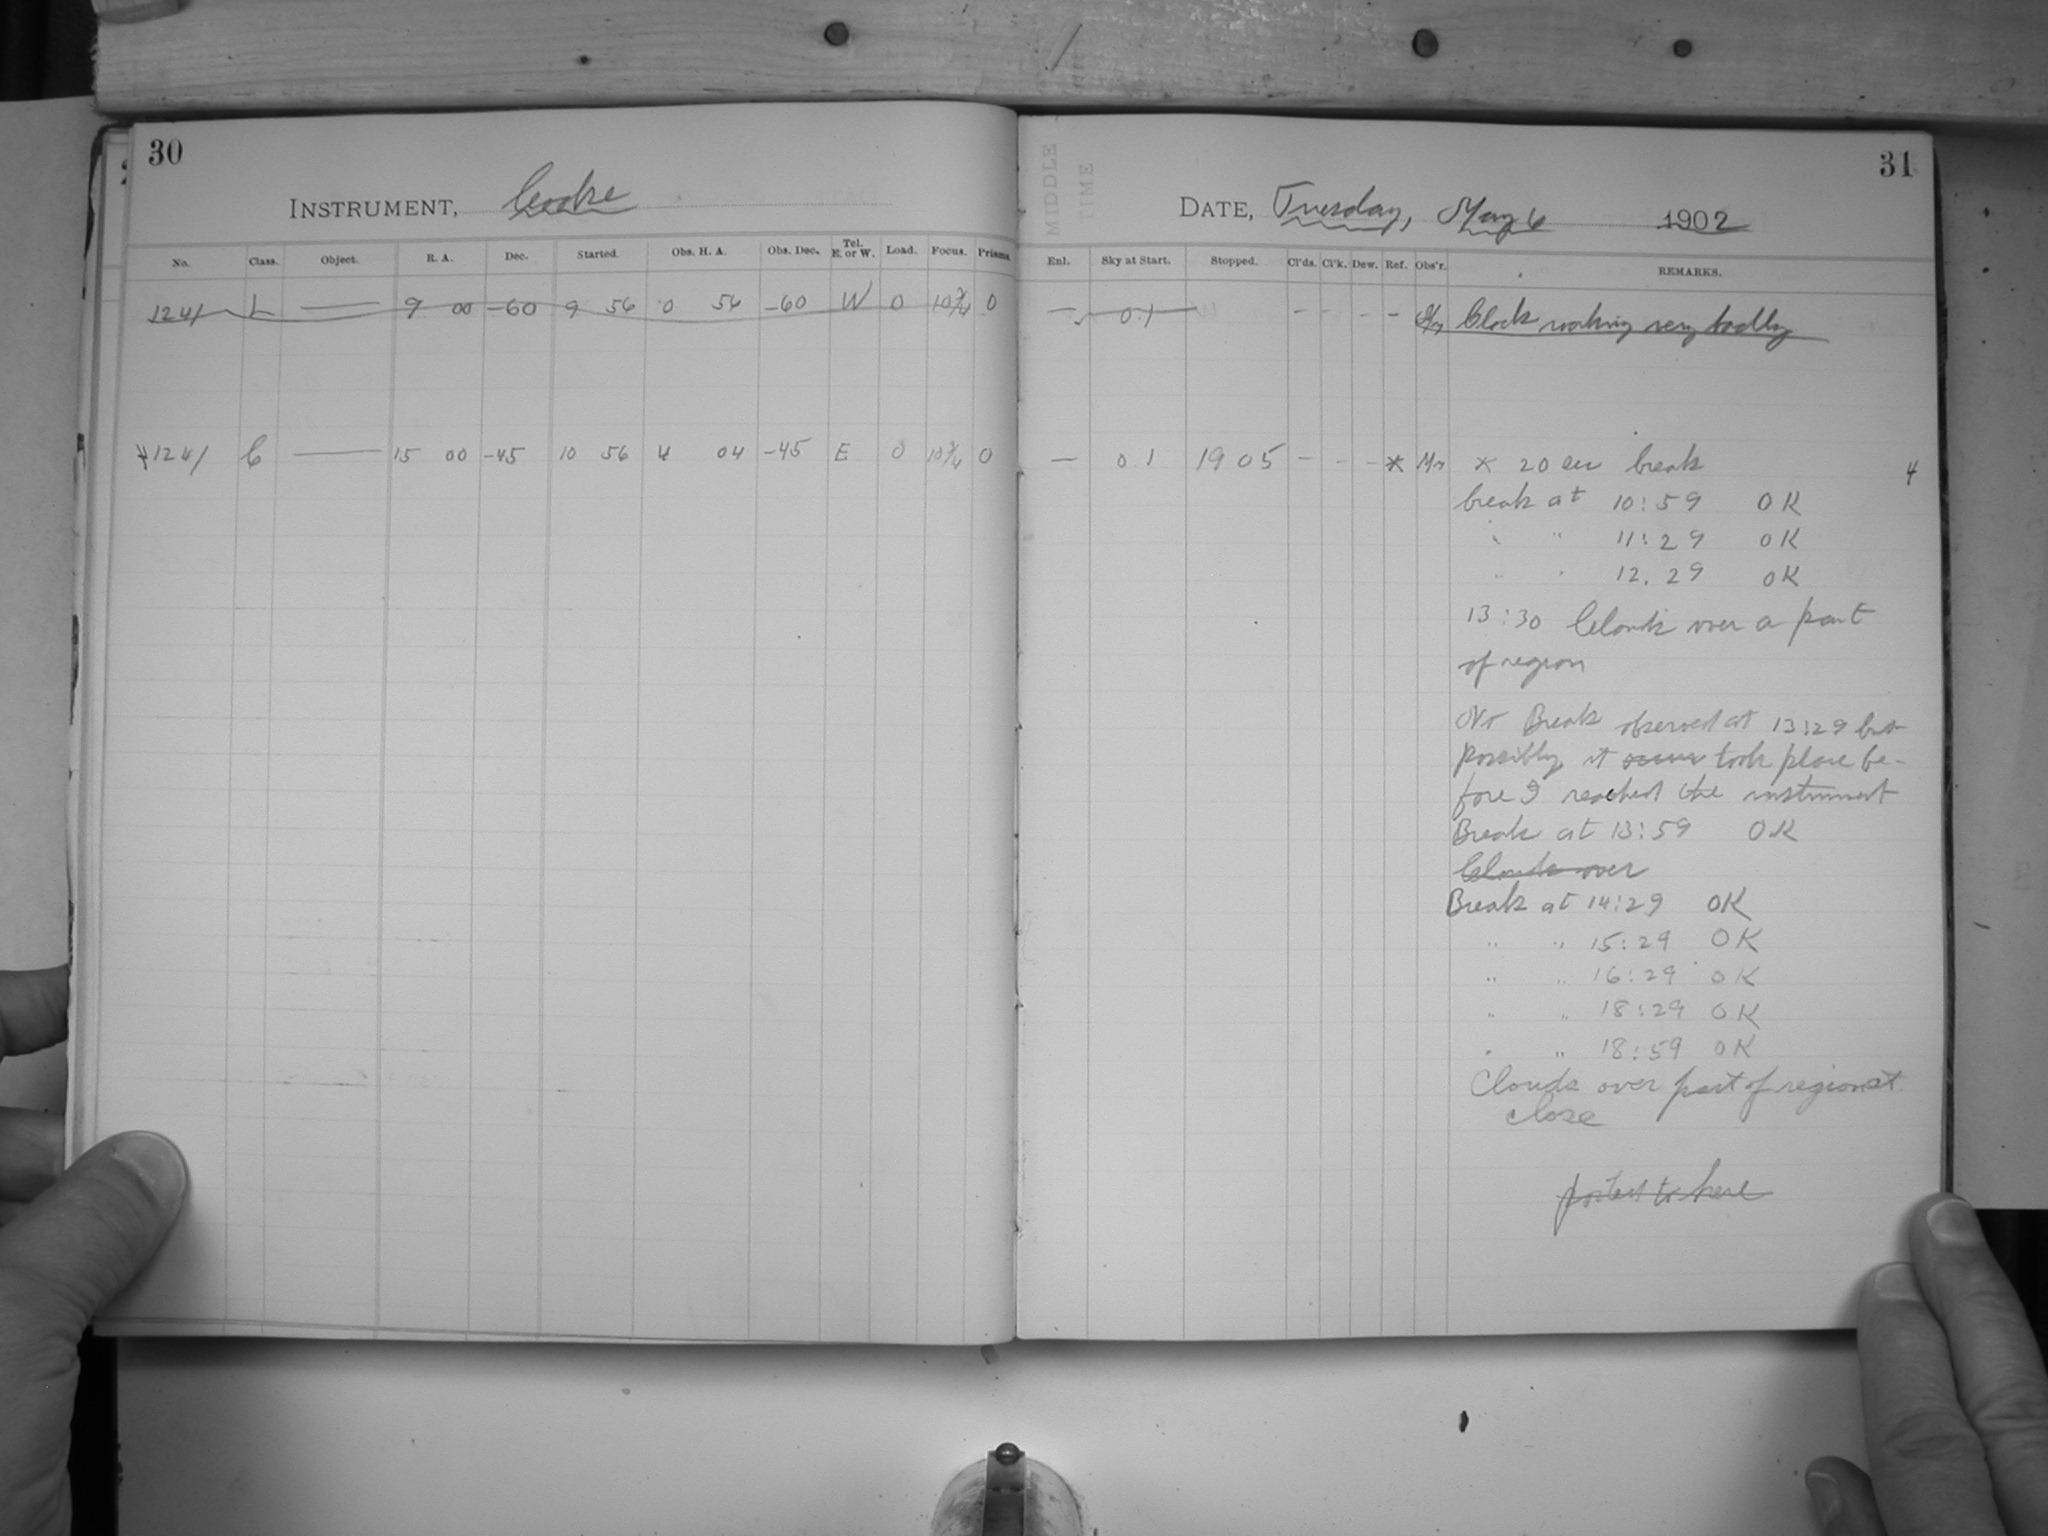 30
INSTRUMENT, Cooke
No. Class. Object. R. A. Dec. Started. Obs. H. A. Obs. Dec. Tel. E. or W. Load. Focus. Prisms
1241 L — 9 00 -60 9 56 0 56 -60 W 0 10 3/4 0
1241 C — 15 00 -45 10 56 4 04 -45 E 0 10 3/4 0
MIDDLE
TIME
31
DATE, Tuesday, May 6 1902
Enl. Sky at Start. Stopped. Cl'ds. Cl'k. Dew. Ref. Obs'r. REMARKS.
— 0.1 - - - - Clock working very badly
— 0 1 19 05 - - - * * 20 sec break 4
break at 10:59 OK
" " 11:29 OK
" " 12.29 OK
13:30 Clouds over a part
of region
No Break observed at 13:29 but
possibly it occur took place be-
fore I reached the instrument
Break at 13:59 OK
Clouds over
Break at 14:29 OK
" " 15:29 OK
" " 16:29 OK
" " 18:29 OK
" " 18:59 OK
Clouds over part of region at
close
posted to here